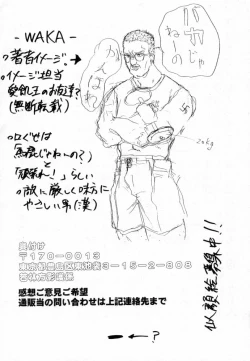 - WAKA -
バカじゃ
ねーの
がんばれ
○著者イメージ
○イメージ担当
(無断転載)
○口ぐせは
「馬鹿じゃねーの?」
と
「頑張れ!」らしい
○敵に厳しく味方に
やさしい男(漢)
20kg
奥付け
〒170-0013
東京都豊島区東池袋3-15-2-808
若林方影狼保
感想ご意見ご希望
通販当の問い合わせは上記連絡先まで
似顔絵募集中!!
?